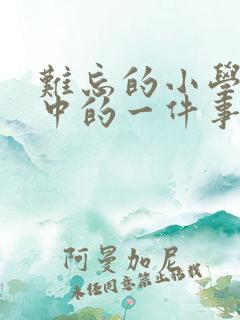 難忘的小學
中的一件事
阿曼加尼
未经同意禁止转载